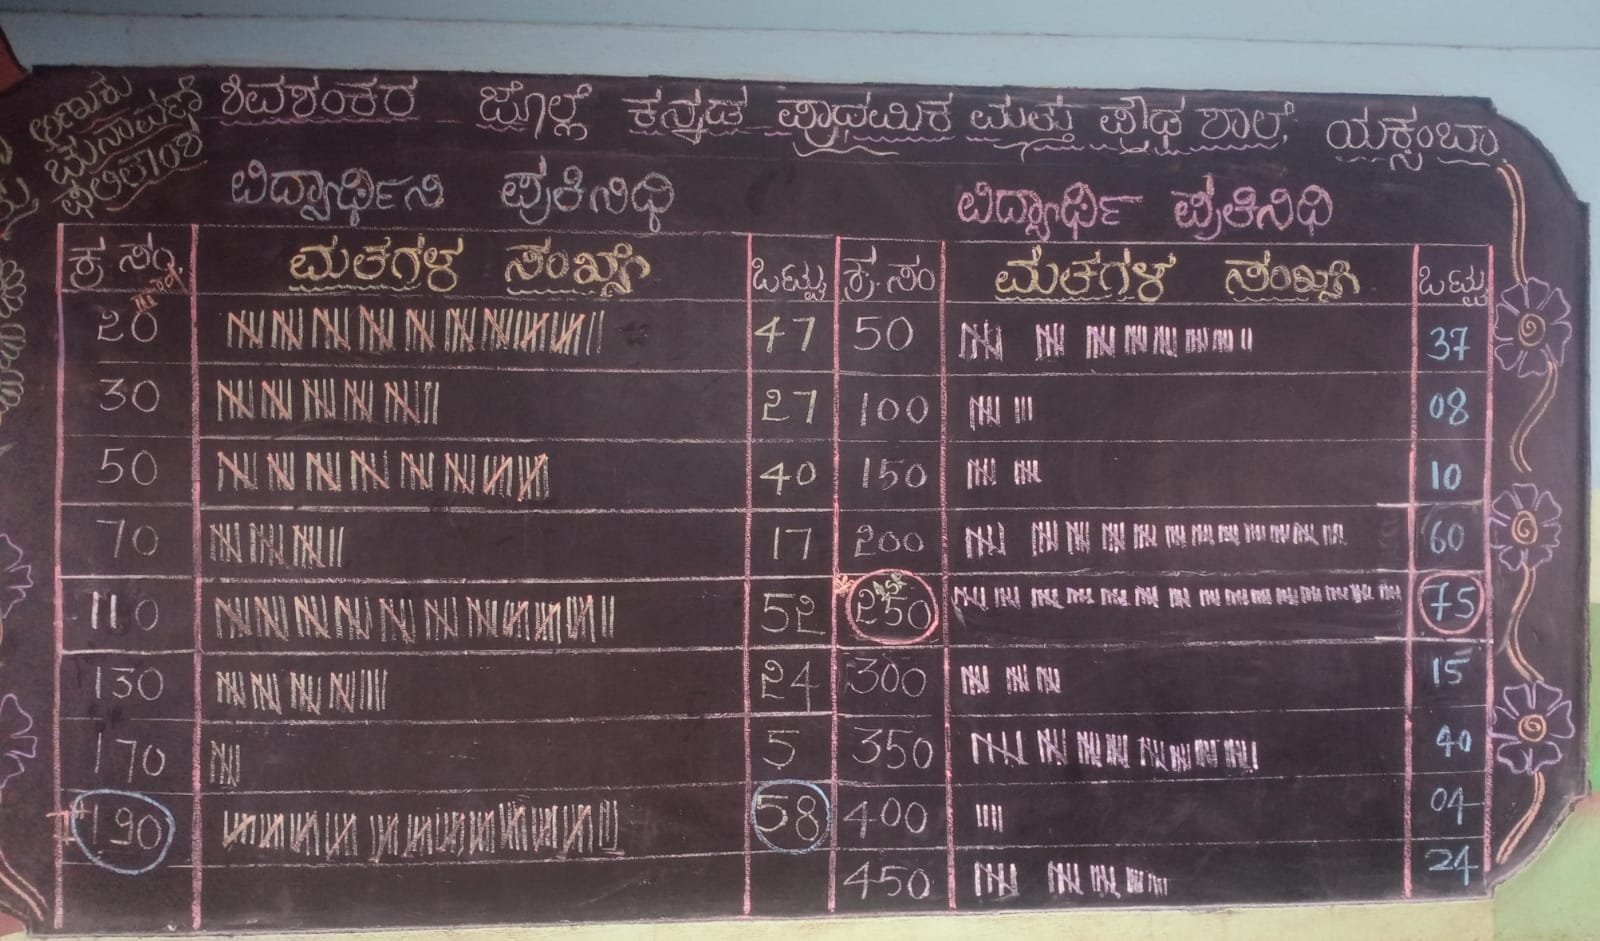 ಅಣುಕು
ಚುನಾವಣೆ
ಫಲಿತಾಂಶ
ಶಿವಶಂಕರ ಜೊಲ್ಲೆ ಕನ್ನಡ ಪ್ರಾಥಮಿಕ ಮತ್ತು ಪ್ರೌಢ ಶಾಲೆ, ಯಕ್ಸಂಬಾ
ವಿದ್ಯಾರ್ಥಿನಿ ಪ್ರತಿನಿಧಿ ವಿದ್ಯಾರ್ಥಿ ಪ್ರತಿನಿಧಿ
ಕ್ರ ಸಂ. ಮತಗಳ ಸಂಖ್ಯೆ ಒಟ್ಟು ಕ್ರ.ಸಂ ಮತಗಳ ಸಂಖ್ಯೆ ಒಟ್ಟು
20 47 50 37
30 27 100 08
50 40 150 10
70 17 200 60
110 52 250 75
130 24 300 15
170 5 350 40
190 58 400 04
450 24